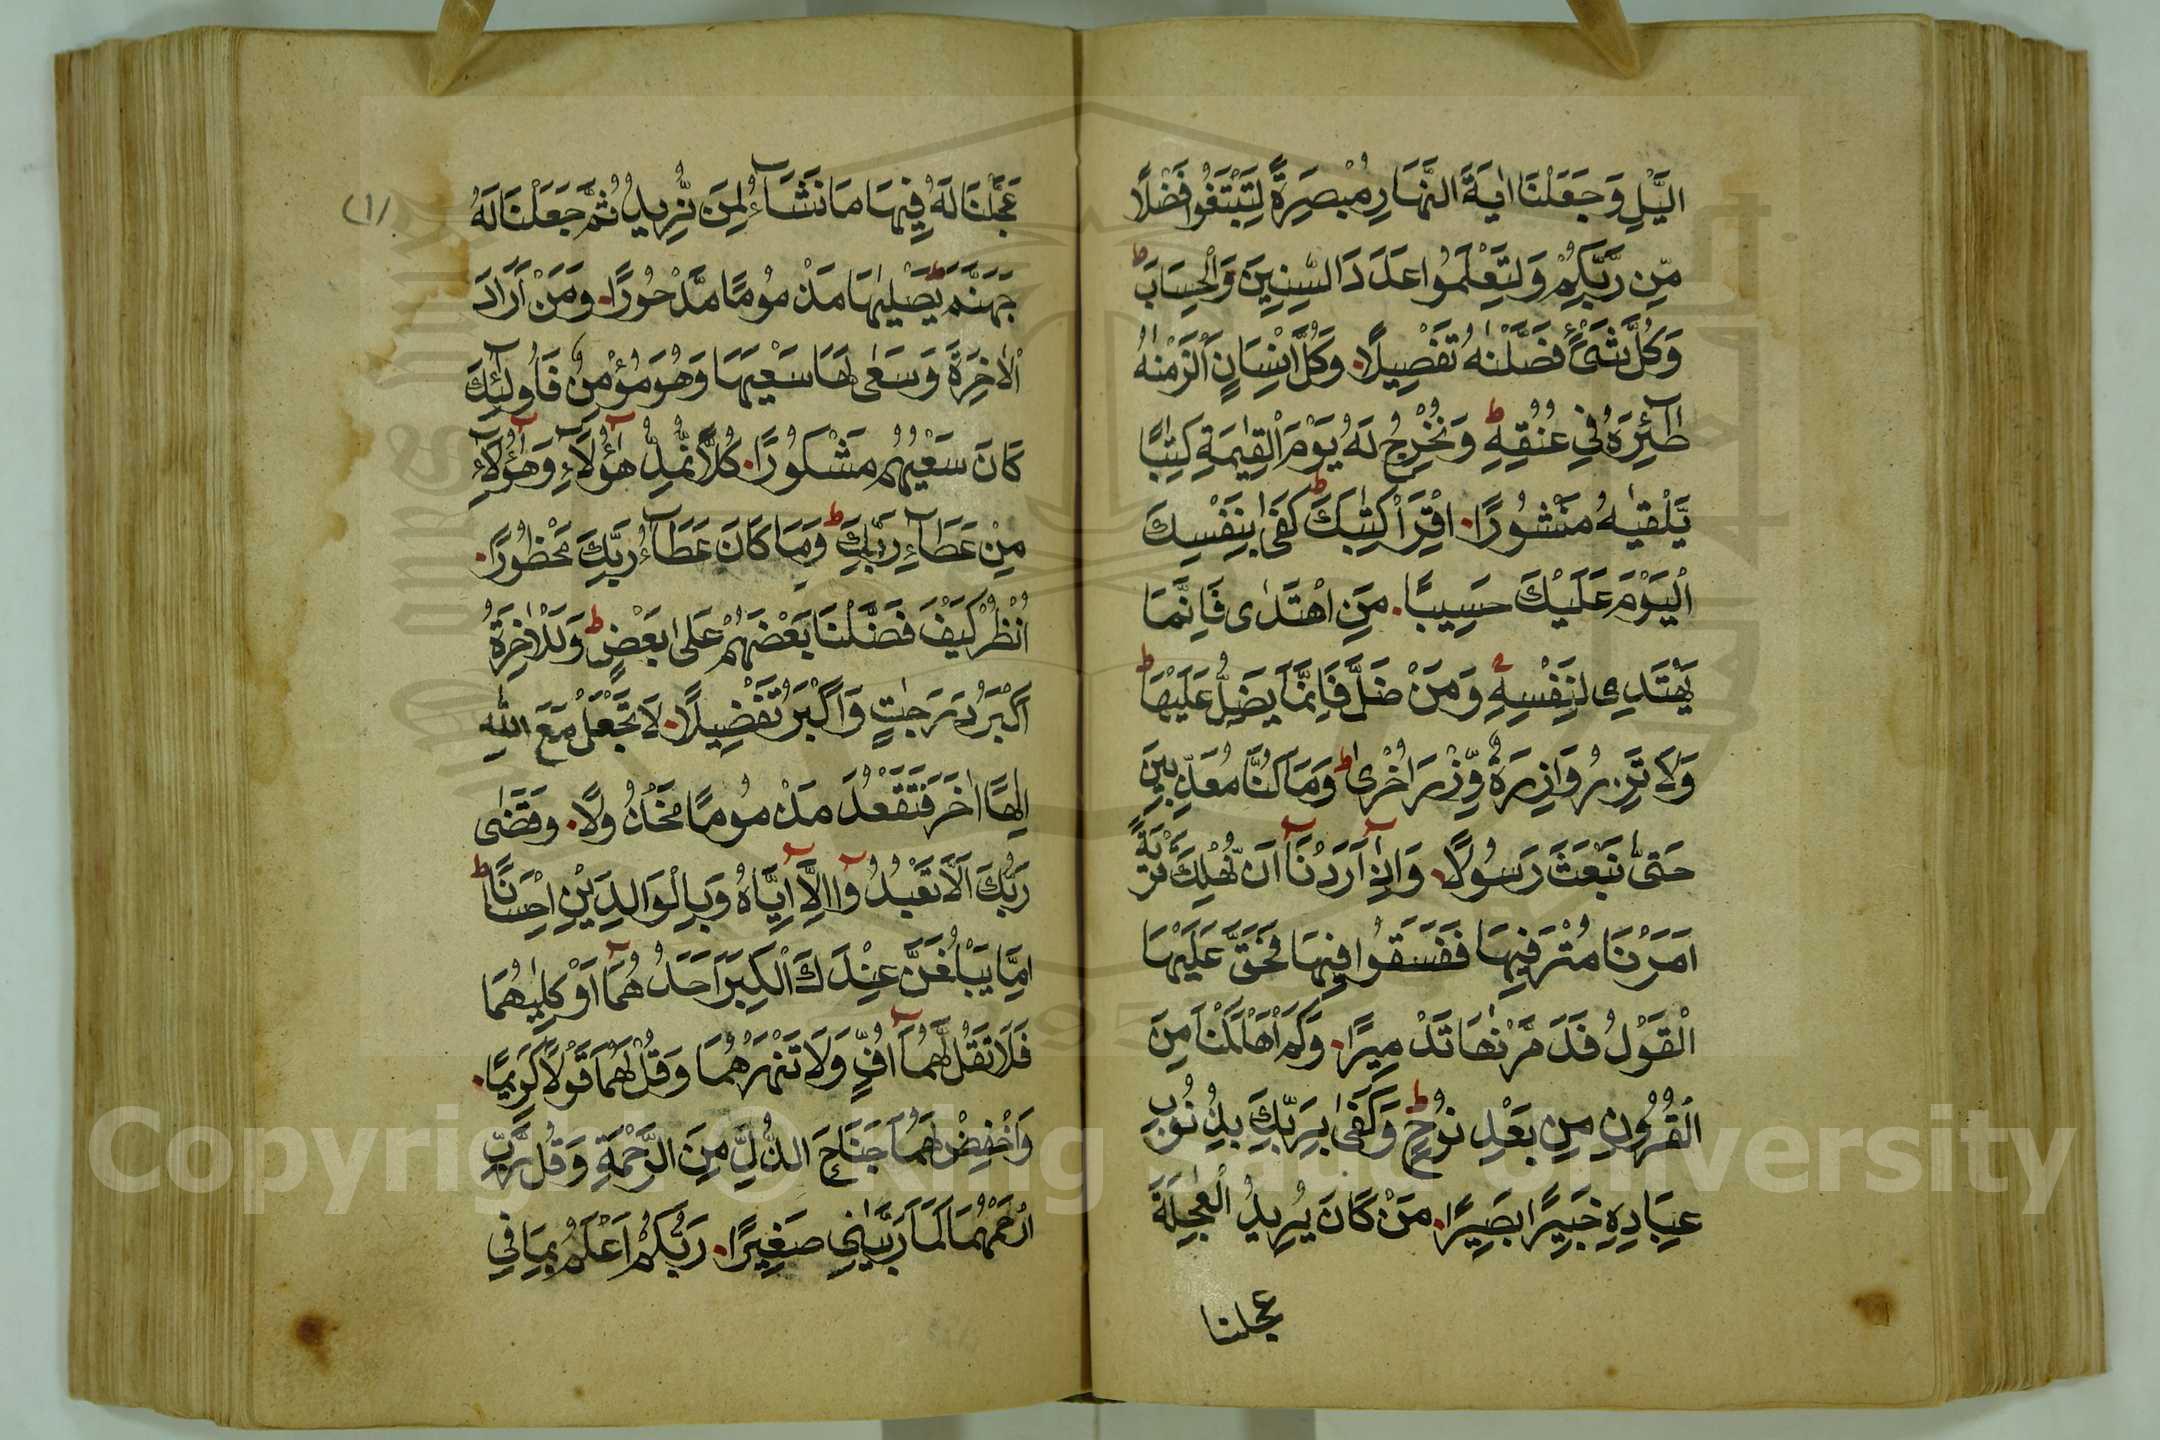 الَّيْلِ وَجَعَلْنَا اٰيَةَ النَّهَارِ مُبْصِرَةً لِتَبْتَغُوا فَضْلًا
مِّنْ رَّبِّكُمْ وَلِتَعْلَمُوا عَدَدَ السِّنِيْنَ وَالْحِسَابَ ط
وَكُلَّ شَىْءٍ فَصَّلْنٰهُ تَفْصِيْلًا . وَكُلَّ اِنْسَانٍ اَلْزَمْنٰهُ
طٰٓئِرَهُ فِىْ عُنُقِهٖ ط وَنُخْرِجُ لَهُ يَوْمَ الْقِيٰمَةِ كِتٰبًا
يَّلْقٰيهُ مَنْشُوْرًا . اِقْرَاْ كِتٰبَكَ ط كَفٰى بِنَفْسِكَ
الْيَوْمَ عَلَيْكَ حَسِيْبًا . مَنِ اهْتَدٰى فَاِنَّمَا
يَهْتَدِىْ لِنَفْسِهٖ وَمَنْ ضَلَّ فَاِنَّمَا يَضِلُّ عَلَيْهَا ط
وَلَا تَزِرُ وَازِرَةٌ وِّزْرَ اُخْرٰى ط وَمَا كُنَّا مُعَذِّبِيْنَ
حَتّٰى نَبْعَثَ رَسُوْلًا . وَاِذَآ اَرَدْنَآ اَنْ نُّهْلِكَ قَرْيَةً
اَمَرْنَا مُتْرَفِيْهَا فَفَسَقُوْا فِيْهَا فَحَقَّ عَلَيْهَا
الْقَوْلُ فَدَمَّرْنٰهَا تَدْمِيْرًا . وَكَمْ اَهْلَكْنَا مِنَ
الْقُرُوْنِ مِنْ بَعْدِ نُوْحٍ ط وَكَفٰى بِرَبِّكَ بِذُنُوْبِ
عِبَادِهٖ خَبِيْرًا بَصِيْرًا . مَنْ كَانَ يُرِيْدُ الْعَاجِلَةَ
عجلنا
(١/
عَجَّلْنَا لَهُ فِيْهَا مَا نَشَآءُ لِمَنْ نُّرِيْدُ ثُمَّ جَعَلْنَا لَهُ
جَهَنَّمَ ط يَصْلٰيهَا مَذْمُوْمًا مَّدْحُوْرًا . وَمَنْ اَرَادَ
الْاٰخِرَةَ وَسَعٰى لَهَا سَعْيَهَا وَهُوَ مُؤْمِنٌ فَاُولٰٓئِكَ
كَانَ سَعْيُهُمْ مَشْكُوْرًا . كُلًّا نُّمِدُّ هٰٓؤُلَآءِ وَهٰٓؤُلَآءِ
مِنْ عَطَآءِ رَبِّكَ ط وَمَا كَانَ عَطَآءُ رَبِّكَ مَحْظُوْرًا .
اُنْظُرْ كَيْفَ فَضَّلْنَا بَعْضَهُمْ عَلٰى بَعْضٍ ط وَلَلْاٰخِرَةُ
اَكْبَرُ دَرَجٰتٍ وَاَكْبَرُ تَفْضِيْلًا . لَا تَجْعَلْ مَعَ اللّٰهِ
اِلٰهًا اٰخَرَ فَتَقْعُدَ مَذْمُوْمًا مَخْذُوْلًا . وَقَضٰى
رَبُّكَ اَلَّا تَعْبُدُوْٓا اِلَّآ اِيَّاهُ وَبِالْوَالِدَيْنِ اِحْسَانًا ط
اِمَّا يَبْلُغَنَّ عِنْدَكَ الْكِبَرَ اَحَدُهُمَآ اَوْ كِلٰيهُمَا
فَلَا تَقُلْ لَّهُمَآ اُفٍّ وَلَا تَنْهَرْهُمَا وَقُلْ لَهُمَا قَوْلًا كَرِيْمًا .
وَاخْفِضْ لَهُمَا جَنَاحَ الذُّلِّ مِنَ الرَّحْمَةِ وَقُلْ رَّبِّ
ارْحَمْهُمَا كَمَا رَبَّيٰنِىْ صَغِيْرًا . رَبُّكُمْ اَعْلَمُ بِمَا فِىْ
Copyright © King Saud University